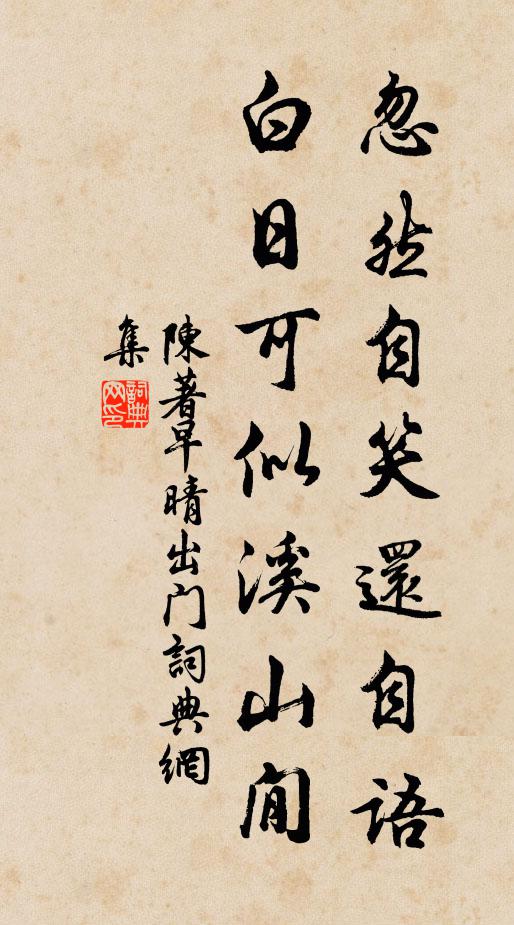 忽然自笑還自語
白日可似溪山閒
陳著早晴出門詞典網
集
詞典
网印